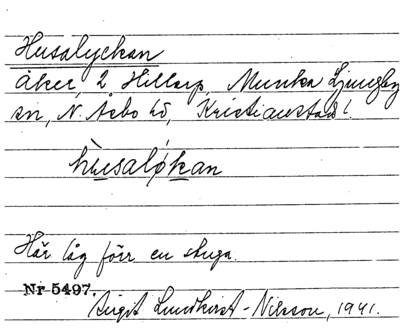 Husalyckan
åker, 2 Hillarp, Munka Ljungby
sn, N. Åsbo hd, Kristianstad l.
hùsaløkan
Här låg förr en stuga.
Nr 5497.
Birgit Lundkvist-Nilsson, 1941.